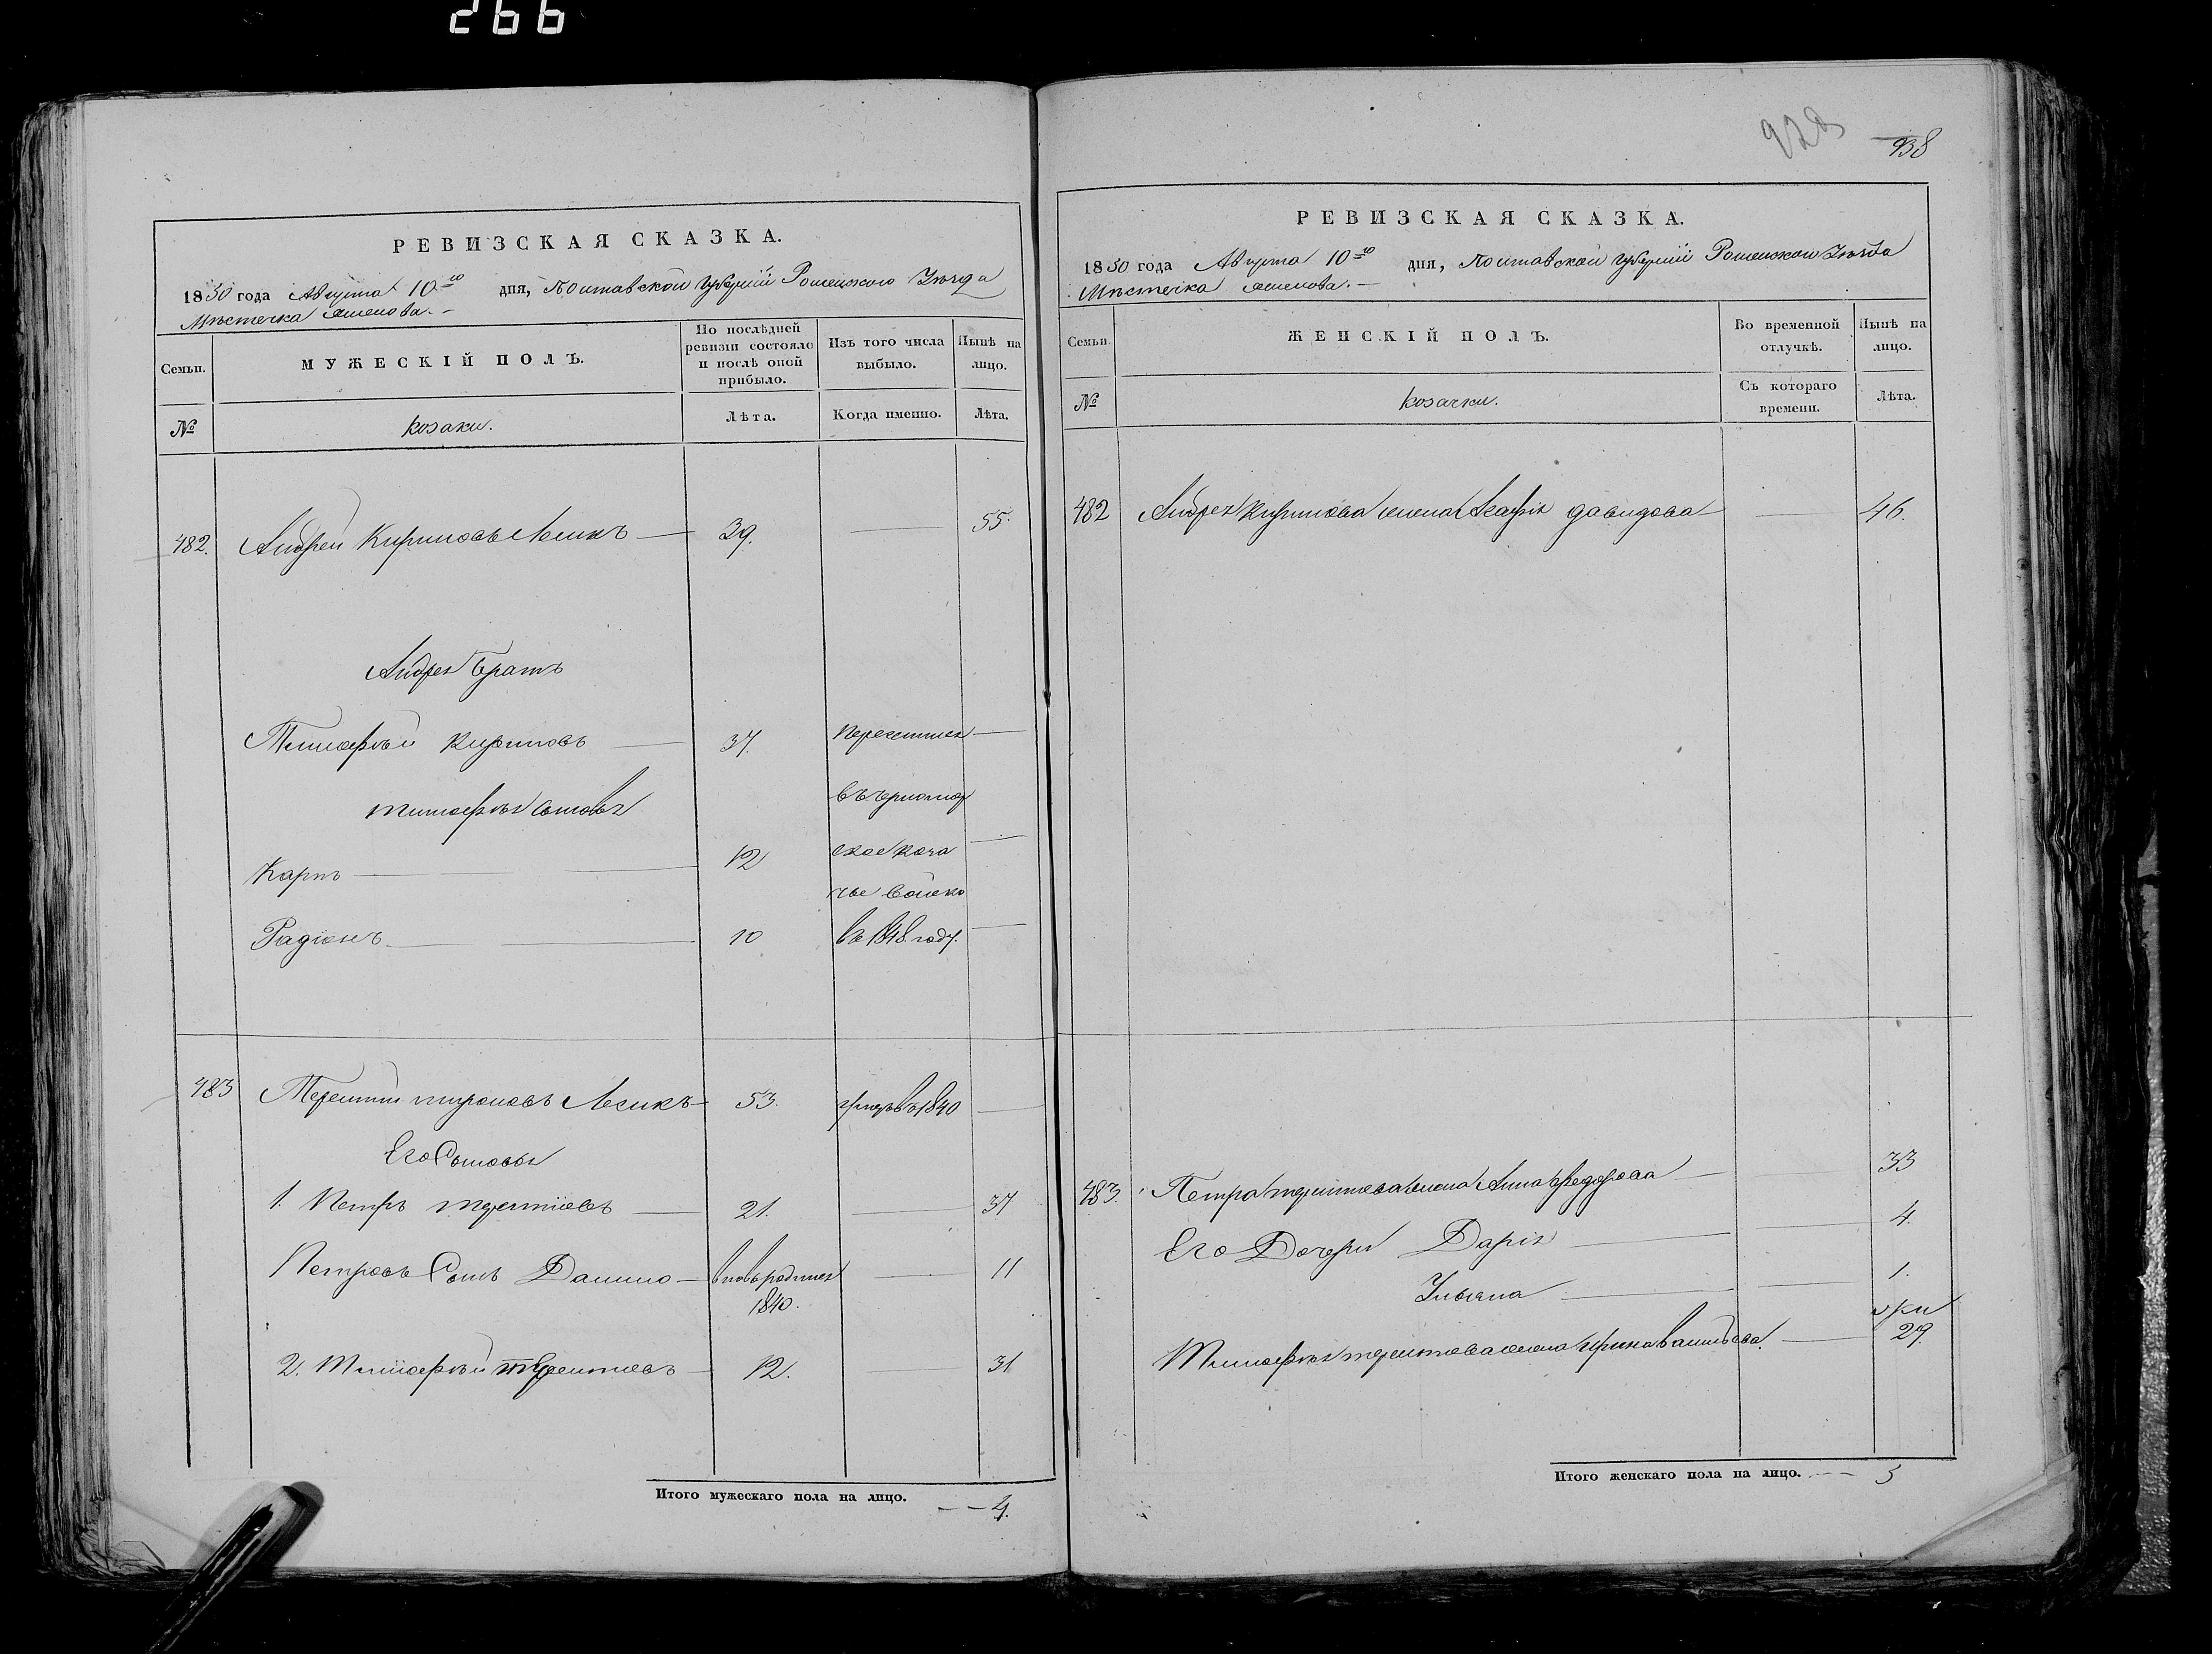 266
928
938
РЕВИЗСКАЯ СКАЗКА.
1850 года Августа 10го дня, Полтавской губернiи Роменского Уѣзда
Мѣстечка
Семьи.
МУЖЕСКІЙ ПОЛЪ.
По послѣдней ревизіи состояло и послѣ оной прибыло.
Изъ того числа выбыло.
Нынѣ на лицо.
№
козаки.
Лѣта.
Когда именно.
Лѣта.
482. Андрей Кириловъ Лесикъ — 39. — 55.
Андрея братъ
Тимофѣй Кириловъ — 37. переселился —
Тимофѣя сыновья
въ черномор
Карпъ — 12 ское каза —
чье войско
Радіонъ — 10 въ 1848 году. —
483 Терентий Лесикъ — 53. умеръ въ 1840 —
Его Сыновья
1. Петръ терентiевъ — 21. — 37
Петровъ Сынъ Данило — вновь родился — 11
1840.
2. Тимофѣй терентиевъ — 12. — 31
Итого мужескаго пола на лицо. — — 4.
РЕВИЗСКАЯ СКАЗКА.
1850 года Августа 10го дня, Полтавской губернiи Роменскаго Уѣзда
Мѣстечка
Семьи.
ЖЕНСКІЙ ПОЛЪ.
Во временной отлучкѣ.
Нынѣ на лицо.
№
козачки.
Съ котораго времени.
Лѣта.
482 Андрея Кирилова жена Агафія давидова — 46.
483. Петра терентиева жена Анна федорова — 33
Его Дочери Дарія — 4.
Ульяна — 1.
Тимофѣя терентиева жена ирина — 29.
Итого женскаго пола на лицо. — — 5